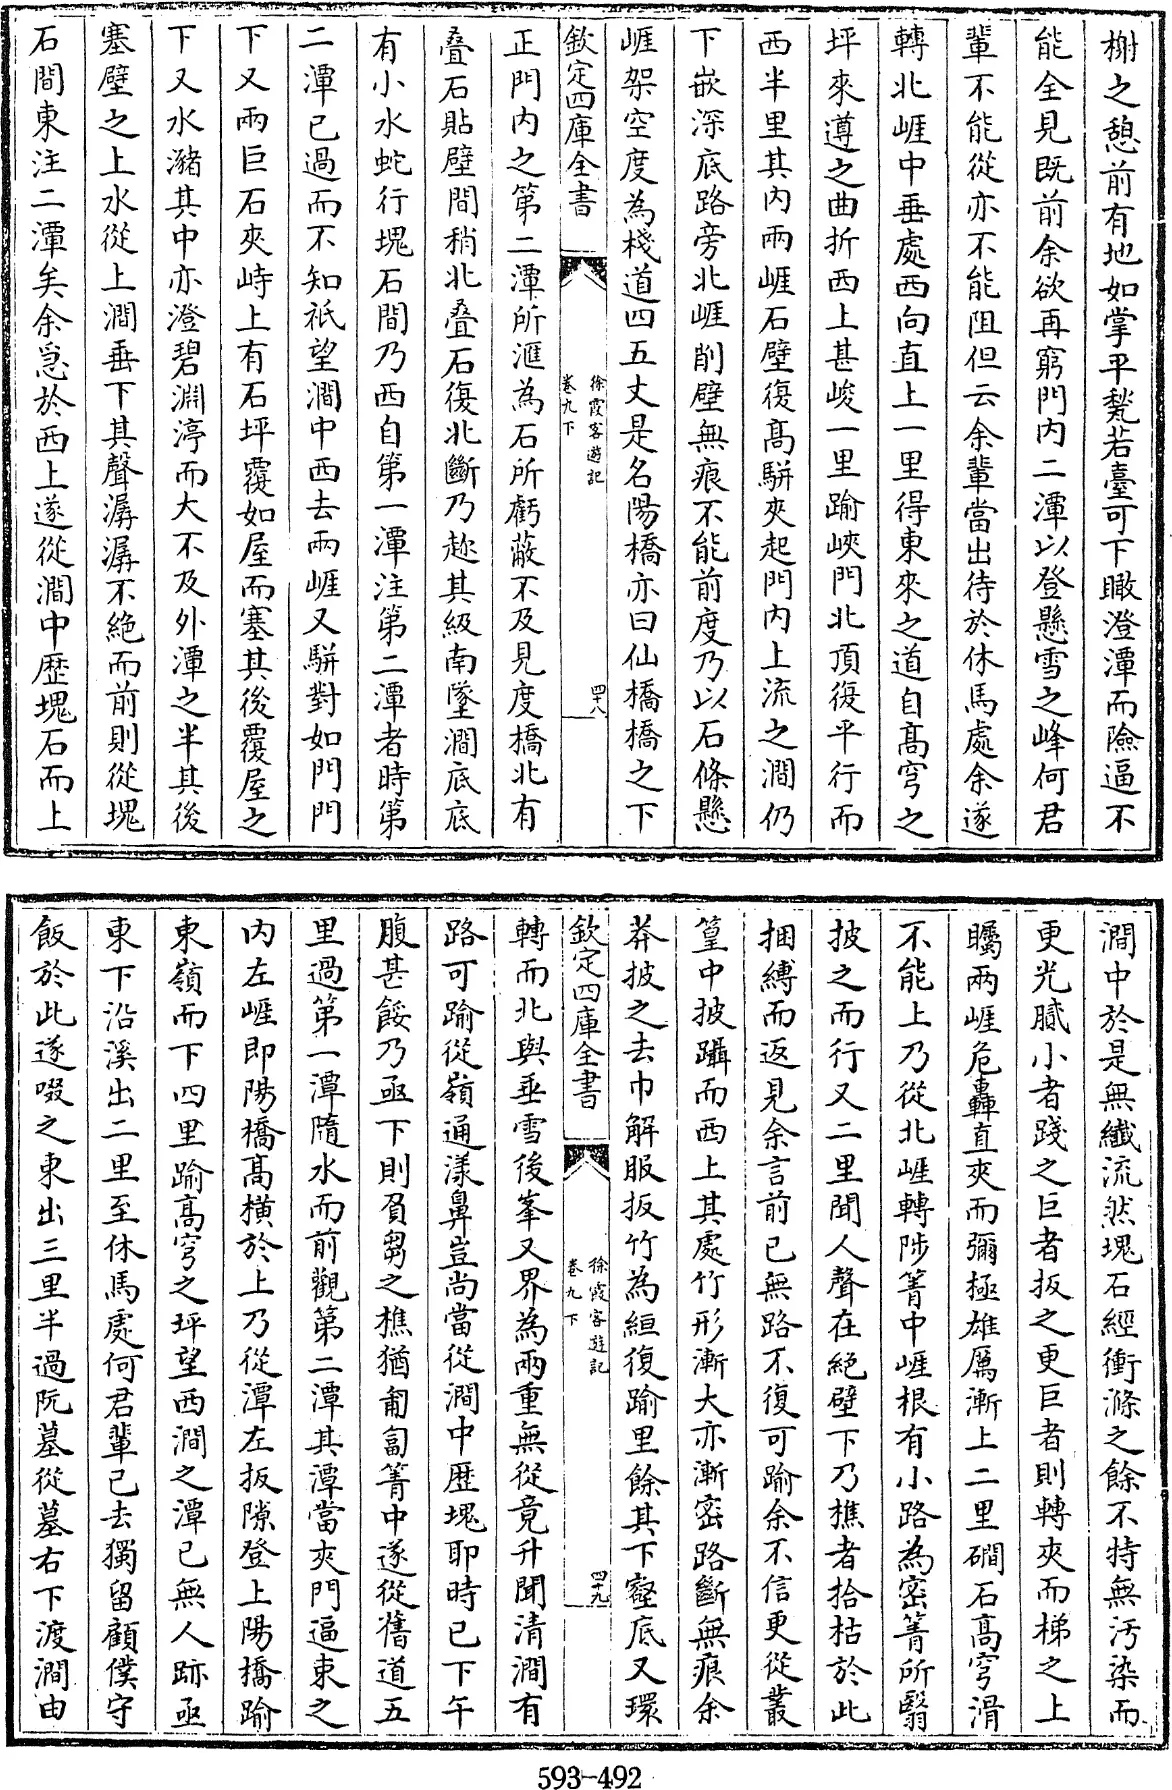 榭之憩前有地如掌平甃若臺可下瞰澄潭而險逼不
能全見既前余欲再窮門内二潭以登懸雪之峰何君
輩不能從亦不能阻但云余輩當出待於休馬處余遂
轉北崕中垂處西向直上一里得東來之道自髙穹之
坪來遵之曲折西上甚峻一里踰峽門北頂復平行而
西半里其内兩崕石壁復髙駢夾起門内上流之澗仍
下嵌深底路旁北崕削壁無痕不能前度乃以石條懸
崕架空度為棧道四五丈是名陽橋亦曰仙橋橋之下
欽定四庫全書
徐霞客遊記
卷九下
四十八
正門内之第二潭所滙為石所虧蔽不及見度橋北有
疊石貼壁間稍北疊石復北斷乃趂其級南墜澗底底
有小水蛇行塊石間乃西自第一潭注第二潭者時第
二潭已過而不知祇望澗中西去兩崕又駢對如門門
下又兩巨石夾峙上有石坪覆如屋而塞其後覆屋之
下又水瀦其中亦澄碧淵渟而大不及外潭之半其後
塞壁之上水從上澗垂下其聲潺潺不絶而前則從塊
石間東注二潭矣余急於西上遂從澗中歴塊石而上
澗中於是無纎流然塊石經衝滌之餘不特無汚染而
更光膩小者踐之巨者扳之更巨者則轉夾而梯之上
矚兩崕危轟直夾而彌極雄厲漸上二里磵石髙穹滑
不能上乃從北崕轉陟箐中崕根有小路為密箐所翳
披之而行又二里聞人聲在絶壁下乃樵者拾枯於此
捆縛而返見余言前已無路不復可踰余不信更從叢
篁中披躡而西上其處竹形漸大亦漸密路斷無痕余
莽披之去巾解服扳竹為絙復踰里餘其下壑底又環
欽定四庫全書
徐霞客遊記
卷九下
四十九
轉而北與垂雪後峯又界為兩重無從竟升聞清澗有
路可踰從嶺通漾鼻豈尚當從澗中歴塊耶時已下午
腹甚餒乃亟下則負芻之樵猶匍匐箐中遂從舊道五
里過第一潭隨水而前觀第二潭其潭當夾門逼束之
内左崕即陽橋髙横於上乃從潭左扳隙登上陽橋踰
東嶺而下四里踰髙穹之坪望西澗之潭已無人跡亟
東下沿溪出二里至休馬處何君輩已去獨留顧僕守
飯於此遂啜之東出三里半過阮墓從墓右下渡澗由
593-492